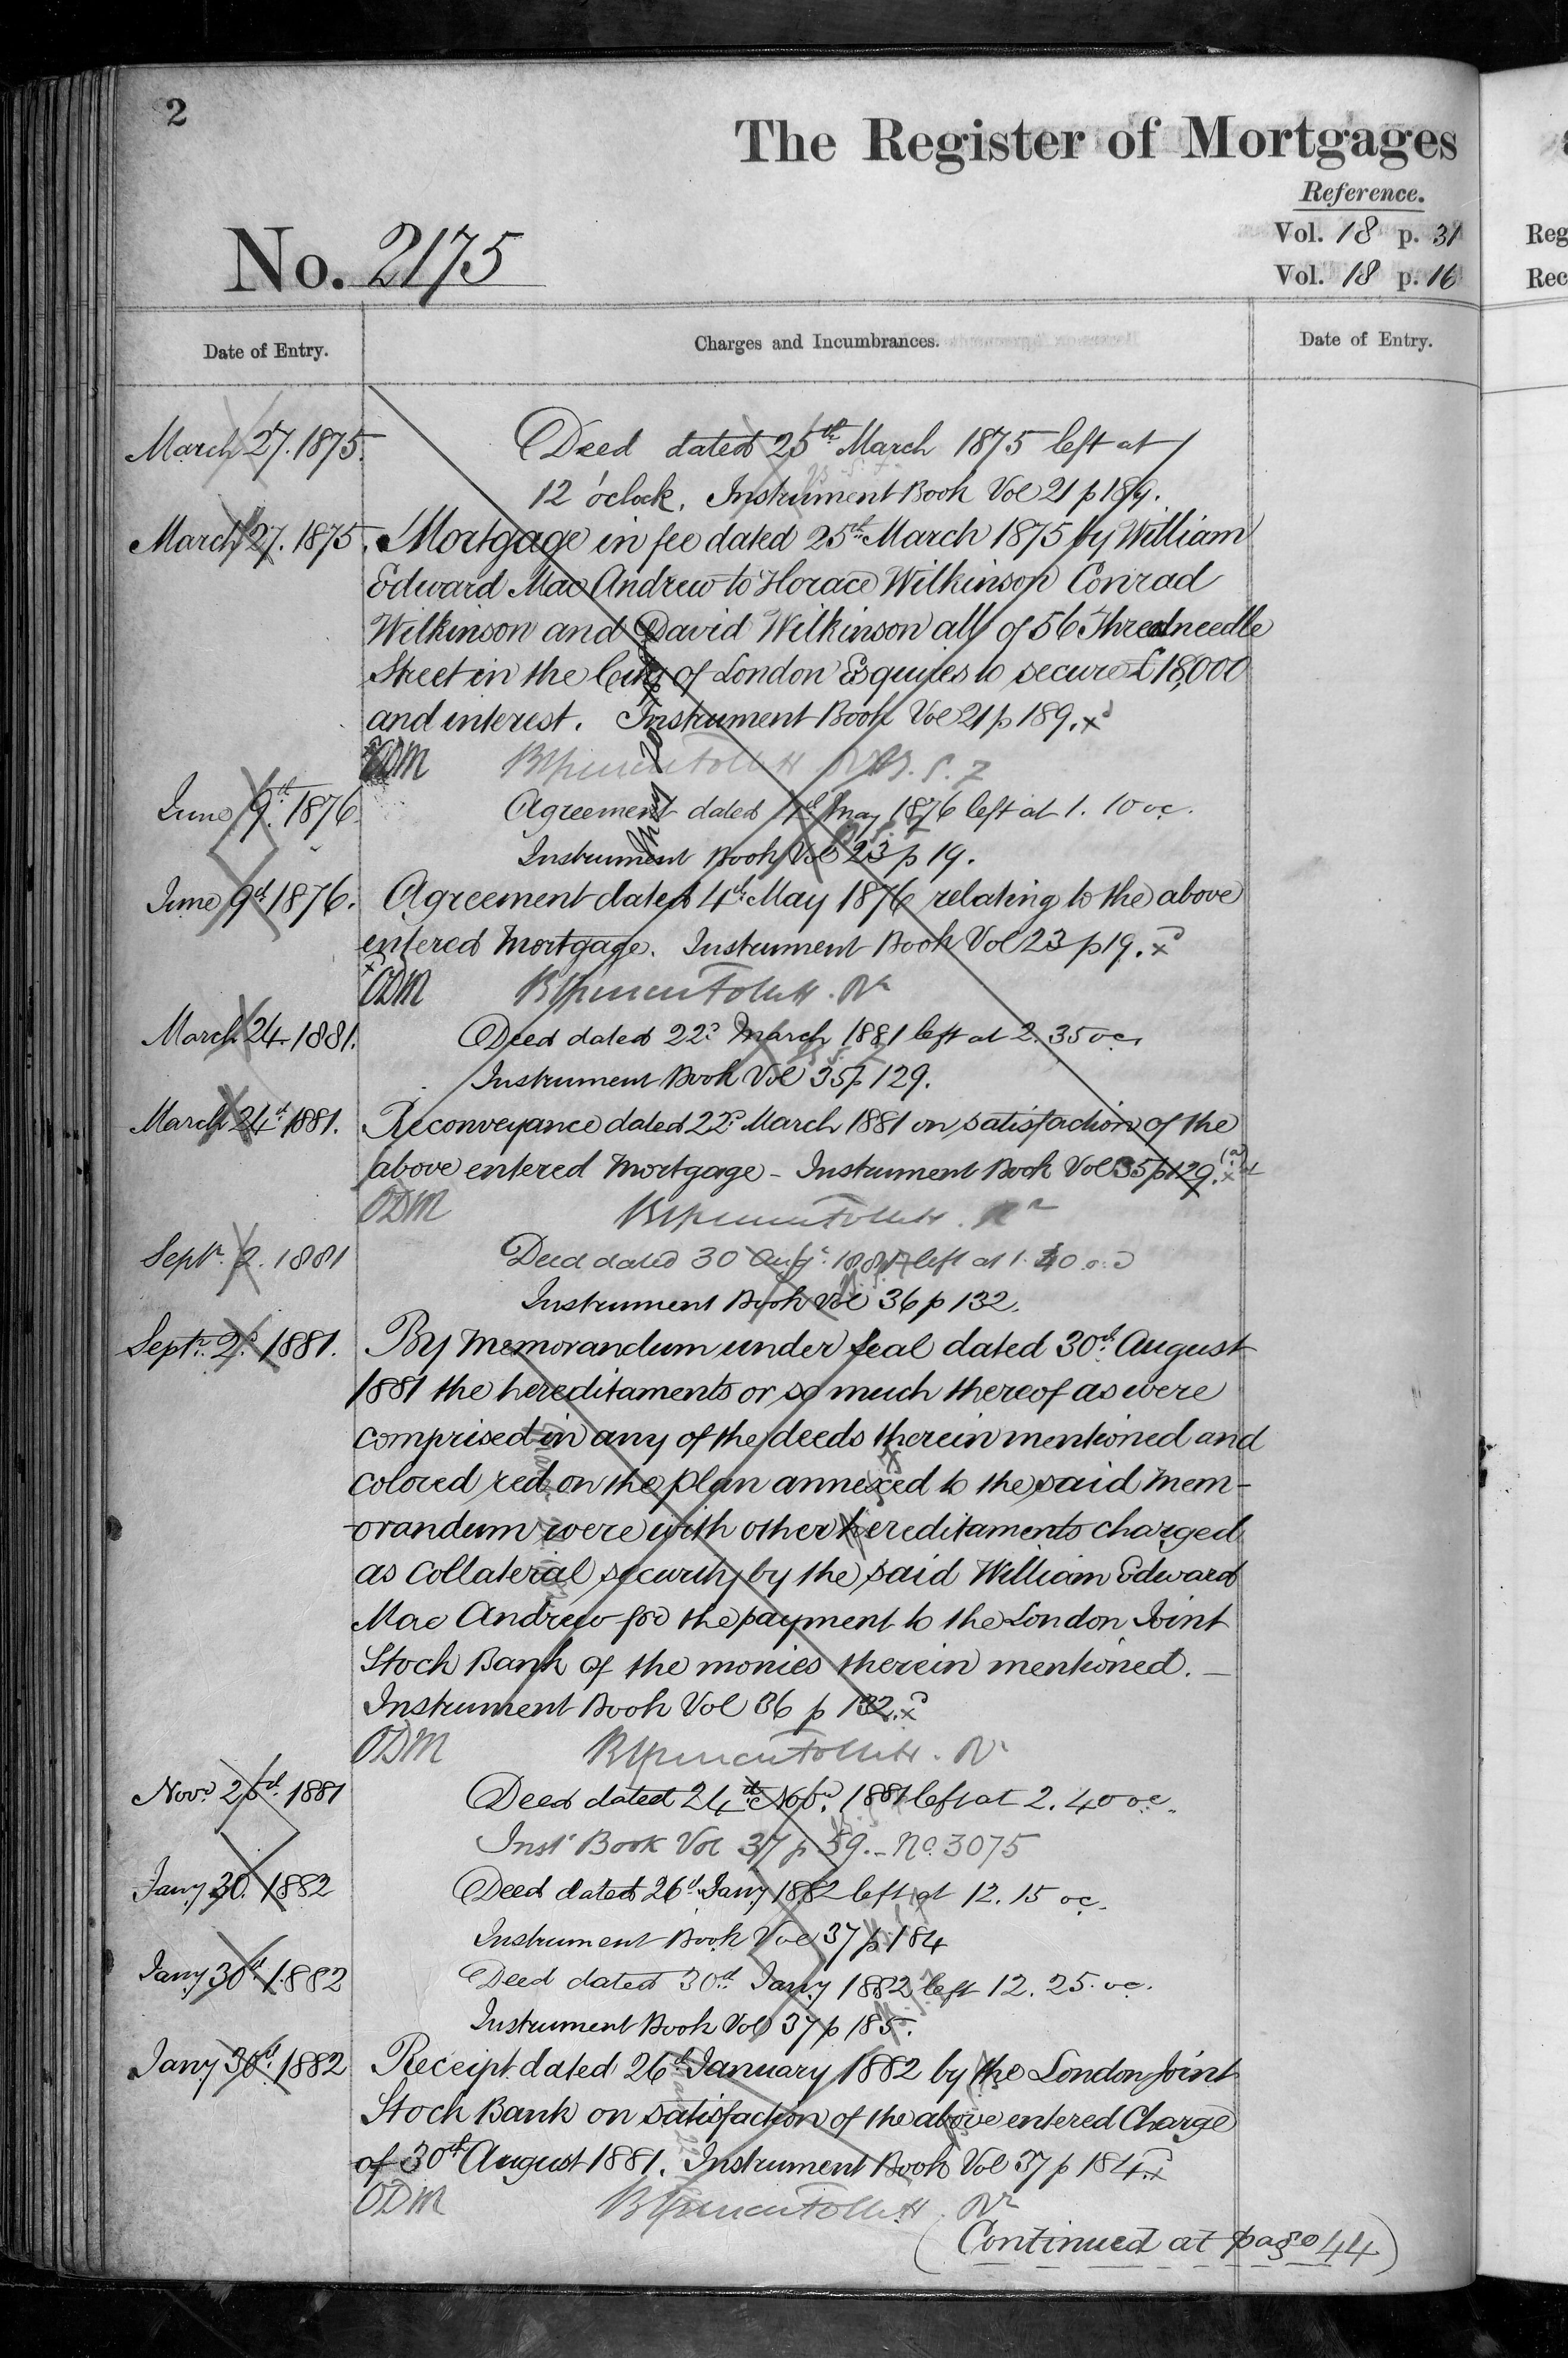 2
The Register of Mortgages
Reference.
Vol. 18 p. 31
Vol. 18 p. 16
No. 2175
Date of Entry.
Charges and Incumbrances.
Date of Entry.
March 27. 1875.
Deed dated 25th March 1875 left at
12 o'clock. Instrument Book Vol 21 p 189.
March 27. 1875.
Mortgage in fee dated 25th March 1875 by William
Edward Mac Andrew to Horace Wilkinson Conrad
Wilkinson and David Wilkinson all of 56 Threadneedle
Street in the City of London Esquires to secure £18,000
and interest. Instrument Book Vol 21 p 189.
ODM
June 9th 1876
Agreement dated May 1876 left at 1. 10 oc.
Instrument Book Vol 23 p 19.
June 9th 1876.
Agreement dated 4th May 1876 relating to the above
entered Mortgage. Instrument Book Vol 23 p 19.
ODM
March 24. 1881.
Deed dated 22d March 1881 left at 2. 35 oc.
Instrument Book Vol 35 p 129.
March 24th 1881.
Reconveyance dated 22d March 1881 on satisfaction of the
above entered Mortgage - Instrument Book Vol 35 p 129.
ODM
Septr. 2. 1881
Deed dated 30 Augt. 1881 left at 1. 40 o.c
Instrument Book Vol 36 p 132.
Septr. 2d. 1881.
By Memorandum under Seal dated 30th August
1881 the hereditaments or so much thereof as were
comprised in any of the deeds therein mentioned and
colored red on the plan annexed to the said Mem-
-orandum were with other hereditaments charged
as Collateral security by the said William Edward
Mac Andrew for the payment to the London Joint
Stock Bank of the monies therein mentioned. —
Instrument Book Vol 36 p 132.
ODM
Novr. 25th. 1881
Deed dated 24th Novr. 1881 left at 2. 40 oc.
Inst Book Vol 37 p 59. - No. 3075
Jany 30. 1882
Deed dated 26th Jany 1882 left at 12. 15 oc.
Instrument Book Vol 37 p. 184
Jany 30th 1882
Deed dated 30th Jany 1882 left 12. 25. oc.
Instrument Book Vol 37 p 185.
Jany 30th. 1882
Receipt dated 26th January 1882 by the London Joint
Stock Bank on satisfaction of the above entered Charge
of 30th August 1881. Instrument Book Vol 37 p 184.
ODM
(Continued at page 44)
Reg
Rec